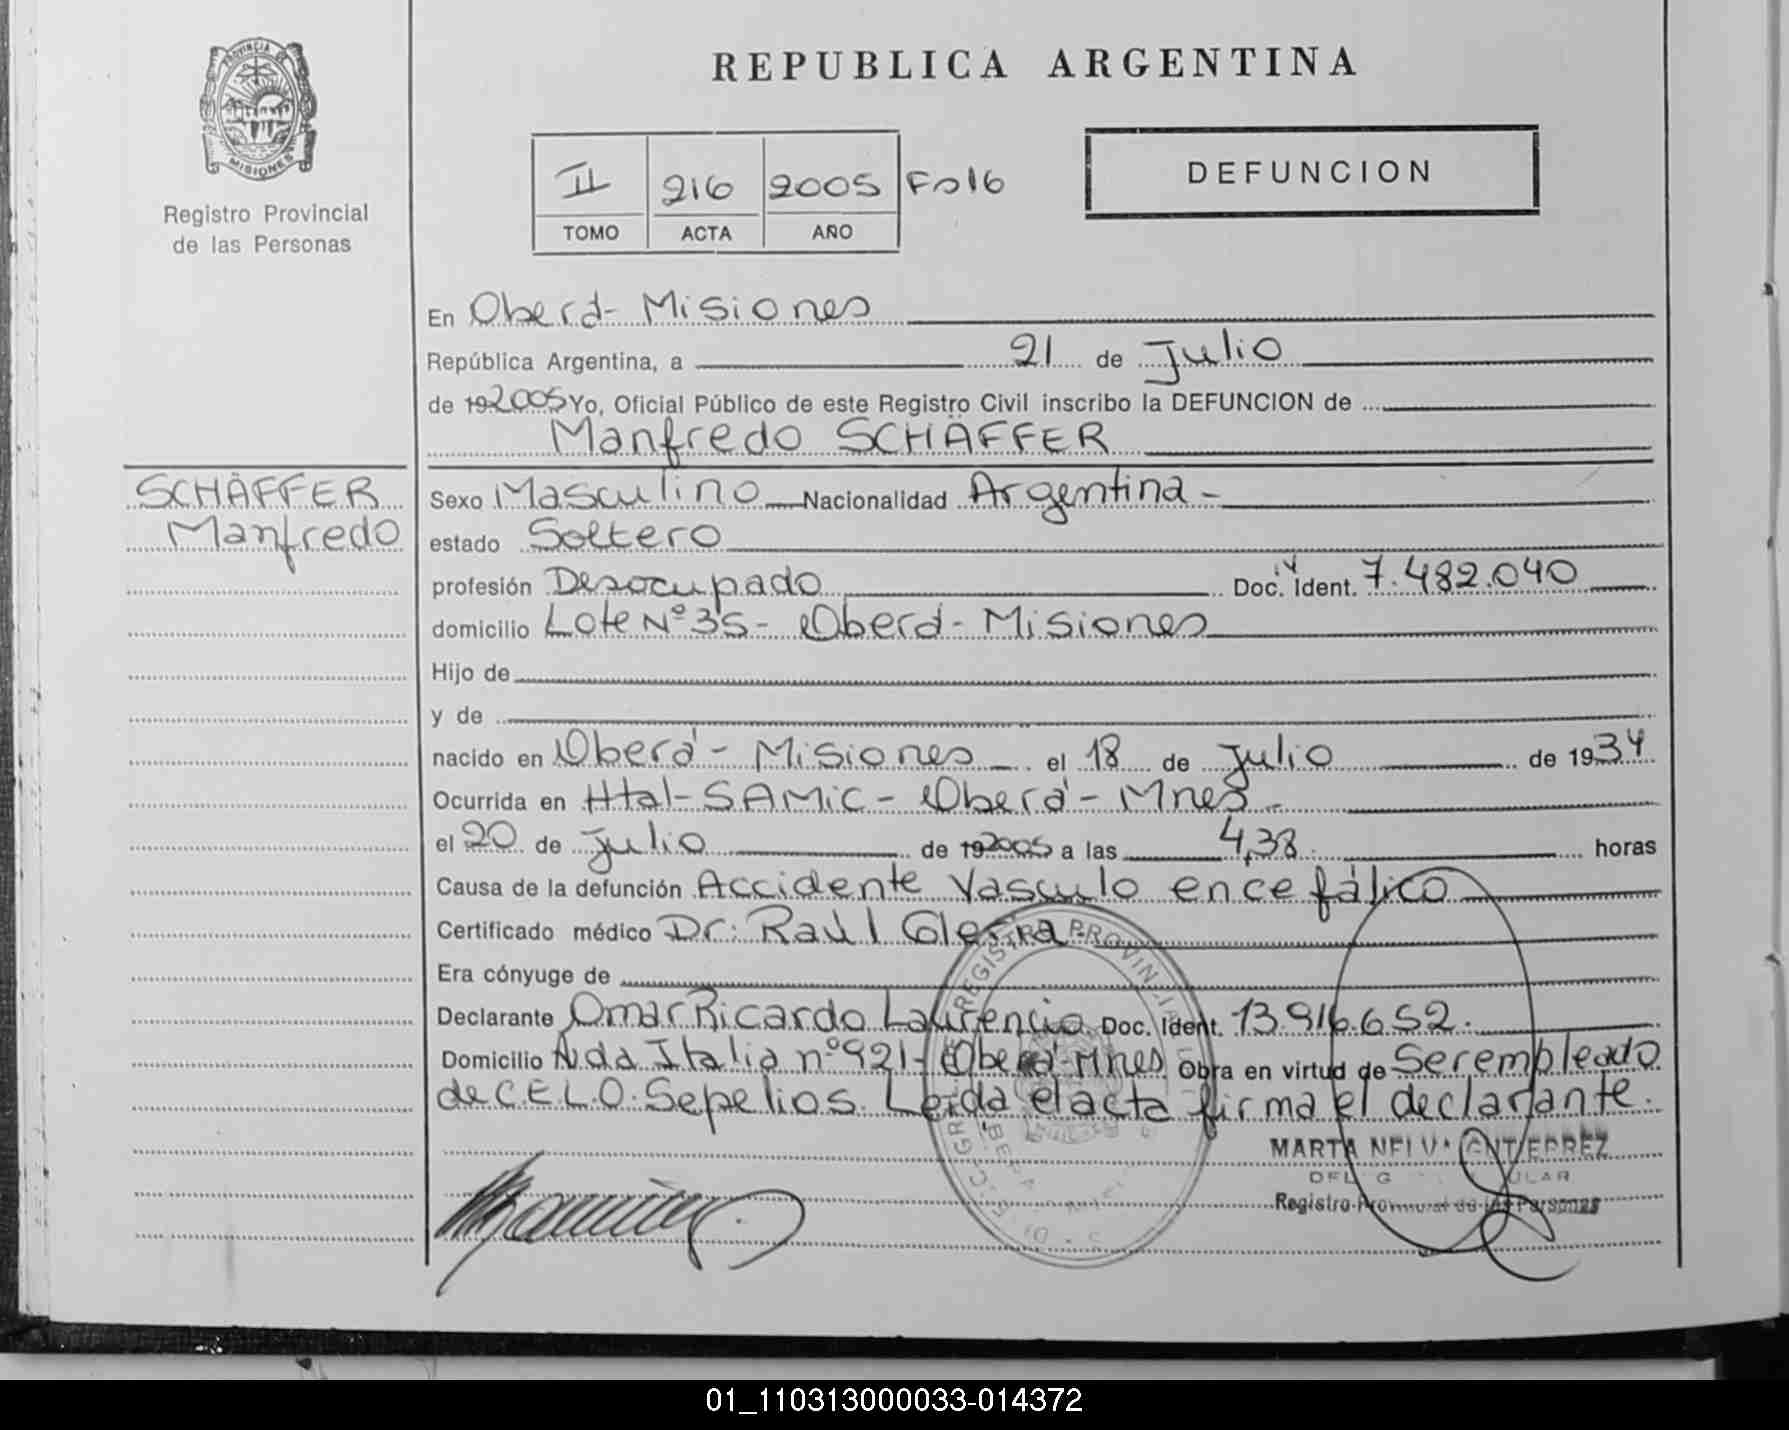 PROVINCIA DE
MISIONES
Registro Provincial
de las Personas
REPUBLICA ARGENTINA
II 216 2005 Fo16
TOMO ACTA AÑO
DEFUNCION
En Oberá- Misiones
República Argentina, a 21 de Julio
de 192005 Yo, Oficial Público de este Registro Civil inscribo la DEFUNCION de
Manfredo SCHÄFFER
SCHÄFFER
Manfredo
Sexo Masculino Nacionalidad Argentina-
estado Soltero
profesión Desocupado Doc. Ident. 7.482.040
domicilio Lote Nº35- Oberá- Misiones
Hijo de
y de
nacido en Oberá- Misiones el 18 de Julio de 1934
Ocurrida en Htal-SAMIC- Oberá- Mnes-
el 20 de Julio de 192005 a las 4,38 horas
Causa de la defunción Accidente Vasculo encefálico
Certificado médico Dr: Raúl
Era cónyuge de
Declarante Omar Ricardo Laurencio Doc. Ident. 13.916.652.
Domicilio Avda Italia nº921- Oberá-Mnes Obra en virtud de Ser empleado
de C.E.L.O. Sepelios. Leída el acta firma el declarante.
MARTA
Registro Provincial de las Personas
01_110313000033-014372